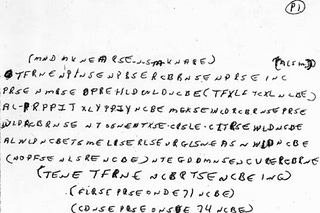 P1
(MND MKNEARSE-N-S-M-KNARE) (ACSM)
TFRNE NPINSENPBSERCBRNSENPRSE INC
PRSE NMRSE OPREHLDWLDNCBE (TFXLF TCXL NCBE)
AL-PRPPIT XLYPPIY NCBE MGKSE WLDRCBRNSE PRSE
WLDRCBRNSE NTSSNENTXSE-CRSLE-CITRSE WLDNCBE
ALWLPNCBETSMELRSERLSEURGLSNEASNWLDNCBE
(NOPFSE NLSRE NCBE) NTEGDDMNSENCURERCBRNE
(TENE TFRNE NCBRTSE NCBE ING)
(FIRSE PRSE ONDE 71 NCBE)
(CDNSE PRSE ONSDE 74 NCBE)